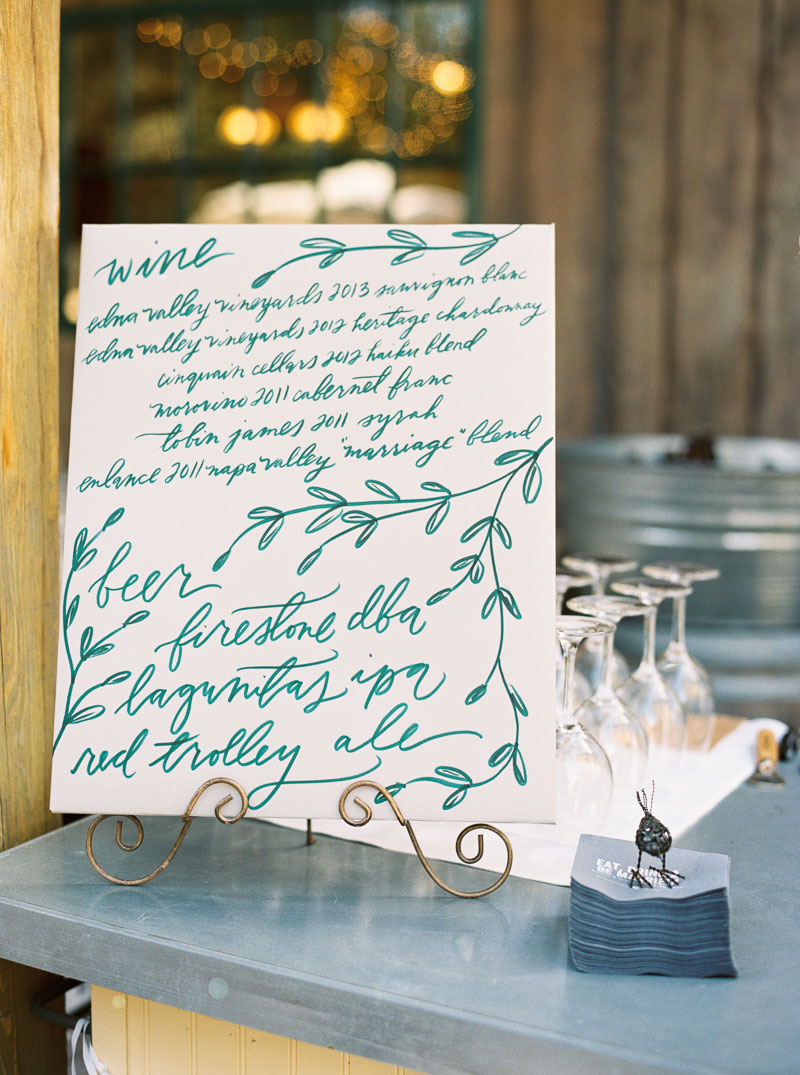 wine
edna valley vineyards 2013 sauvignon blanc
edna valley vineyards 2012 heritage chardonnay
cinquain cellars 2012 haiku blend
morovino 2011 cabernet franc
tobin james 2011 syrah
enlance 2011 napa valley "marriage" blend
beer
firestone dba
lagunitas ipa
red trolley ale
EAT,
BE